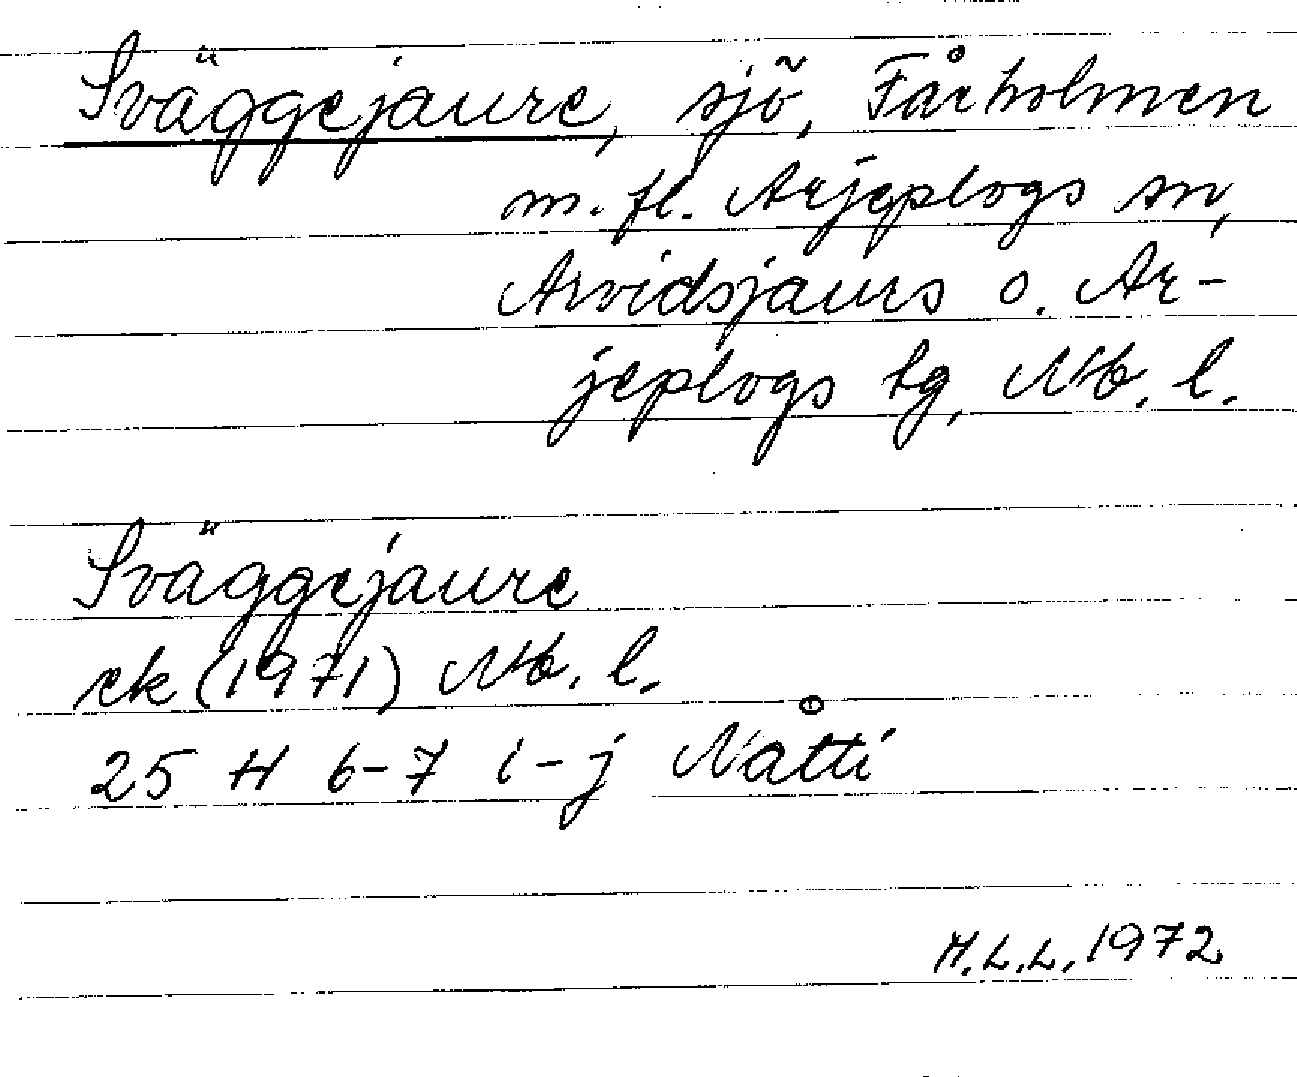 Sväggejaure, sjö, Fårholmen
m. fl. Arjeplogs sn,
Arvidsjaurs o. Ar-
jeplogs tg, Nb. l.
Sväggejaure
ek (1971) Nb. l.
25 H 6-7 i-j Nåtti
H.L.L. 1972